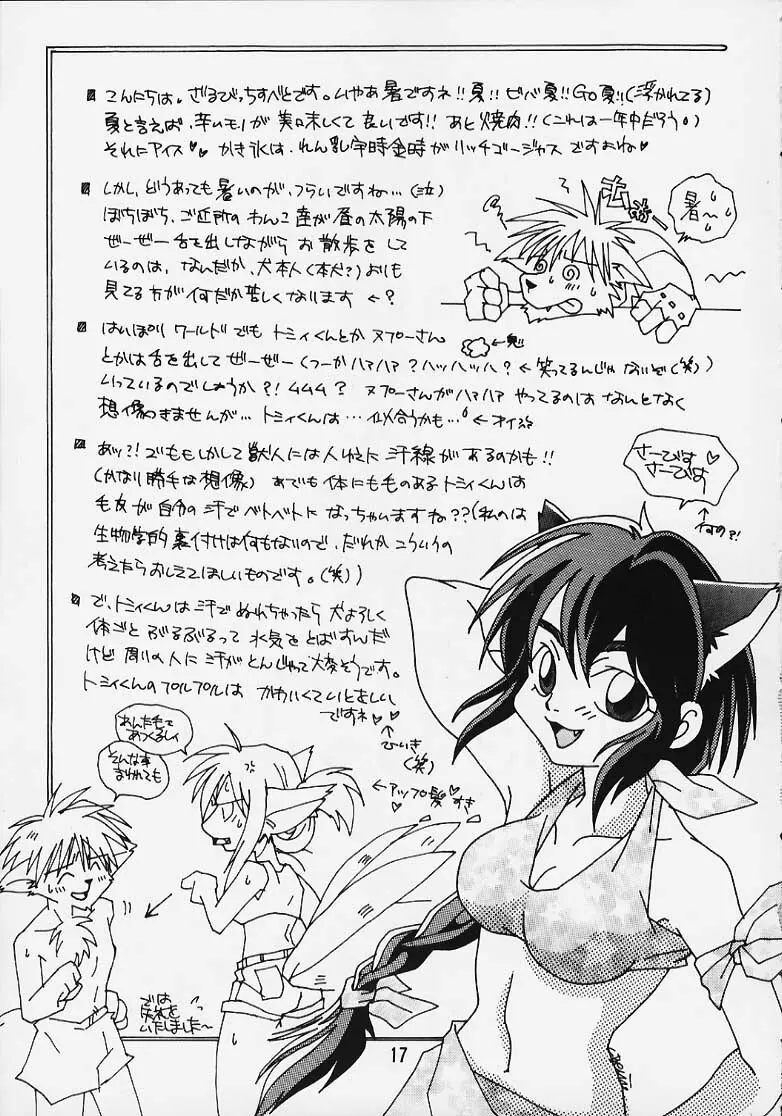 こんにちは。ざるびっちすべとです。いやあ暑ですネ!!夏!!ビバ夏!!Go夏!!(浮かれてる)
夏と言えば、辛いモノが美味しくて良いです!!あと焼肉!!(これは一年中だろう。)
それにアイス♡♡かき氷は、れん乳宇時金時がリッチゴージャスですよね♡
しかし、どうあっても暑いのが、つらいですね…(泣)
ぼちぼち、ご近所のわんこ達が昼の太陽の下
ぜーぜー舌を出しながらお散歩をして
いるのは、なんだか、犬本人(本犬?)よりも
見てる方が何だか苦しくなります←?
暑〜い
はいぱぁワールドでもトミィくんとかヌプーさん
とかは舌を出してぜーぜー(つーかハァハァ?ハッハッハ?←笑ってるんじゃないぞ(笑))
いっているのでしょうか?!ムムム?ヌプーさんがハァハァやってるのはなんとなく
想像つきませんが…トミィくんは…似合うかも…←オイ
あッ?!でももしかして獣人には人ゆえに汗線があるのかも!!
(かなり勝手な想像)あでも体にも毛のあるトミィくんは
毛皮が自分の汗でベトベトになっちゃいますね??(私のは
生物学的裏付けは何もないので、だれかこういうの
考えたらおしえてほしいものです。(笑))
さーびす♡
さーびす
↑何の?!
で、トミィくんは汗でぬれちゃったら犬よろしく
体ごとぶるぶるって水気をとばすんだ
けど周りの人に汗がとんじゃって大変そうです。
トミィくんのプルプルはかわいくていとおしい
ですネ♡♡
↑ひいき(笑)
あんた毛で
あつくるしい
そんな事
言われても
←アップ髪♡すき
では
失礼を
いたしました〜
17